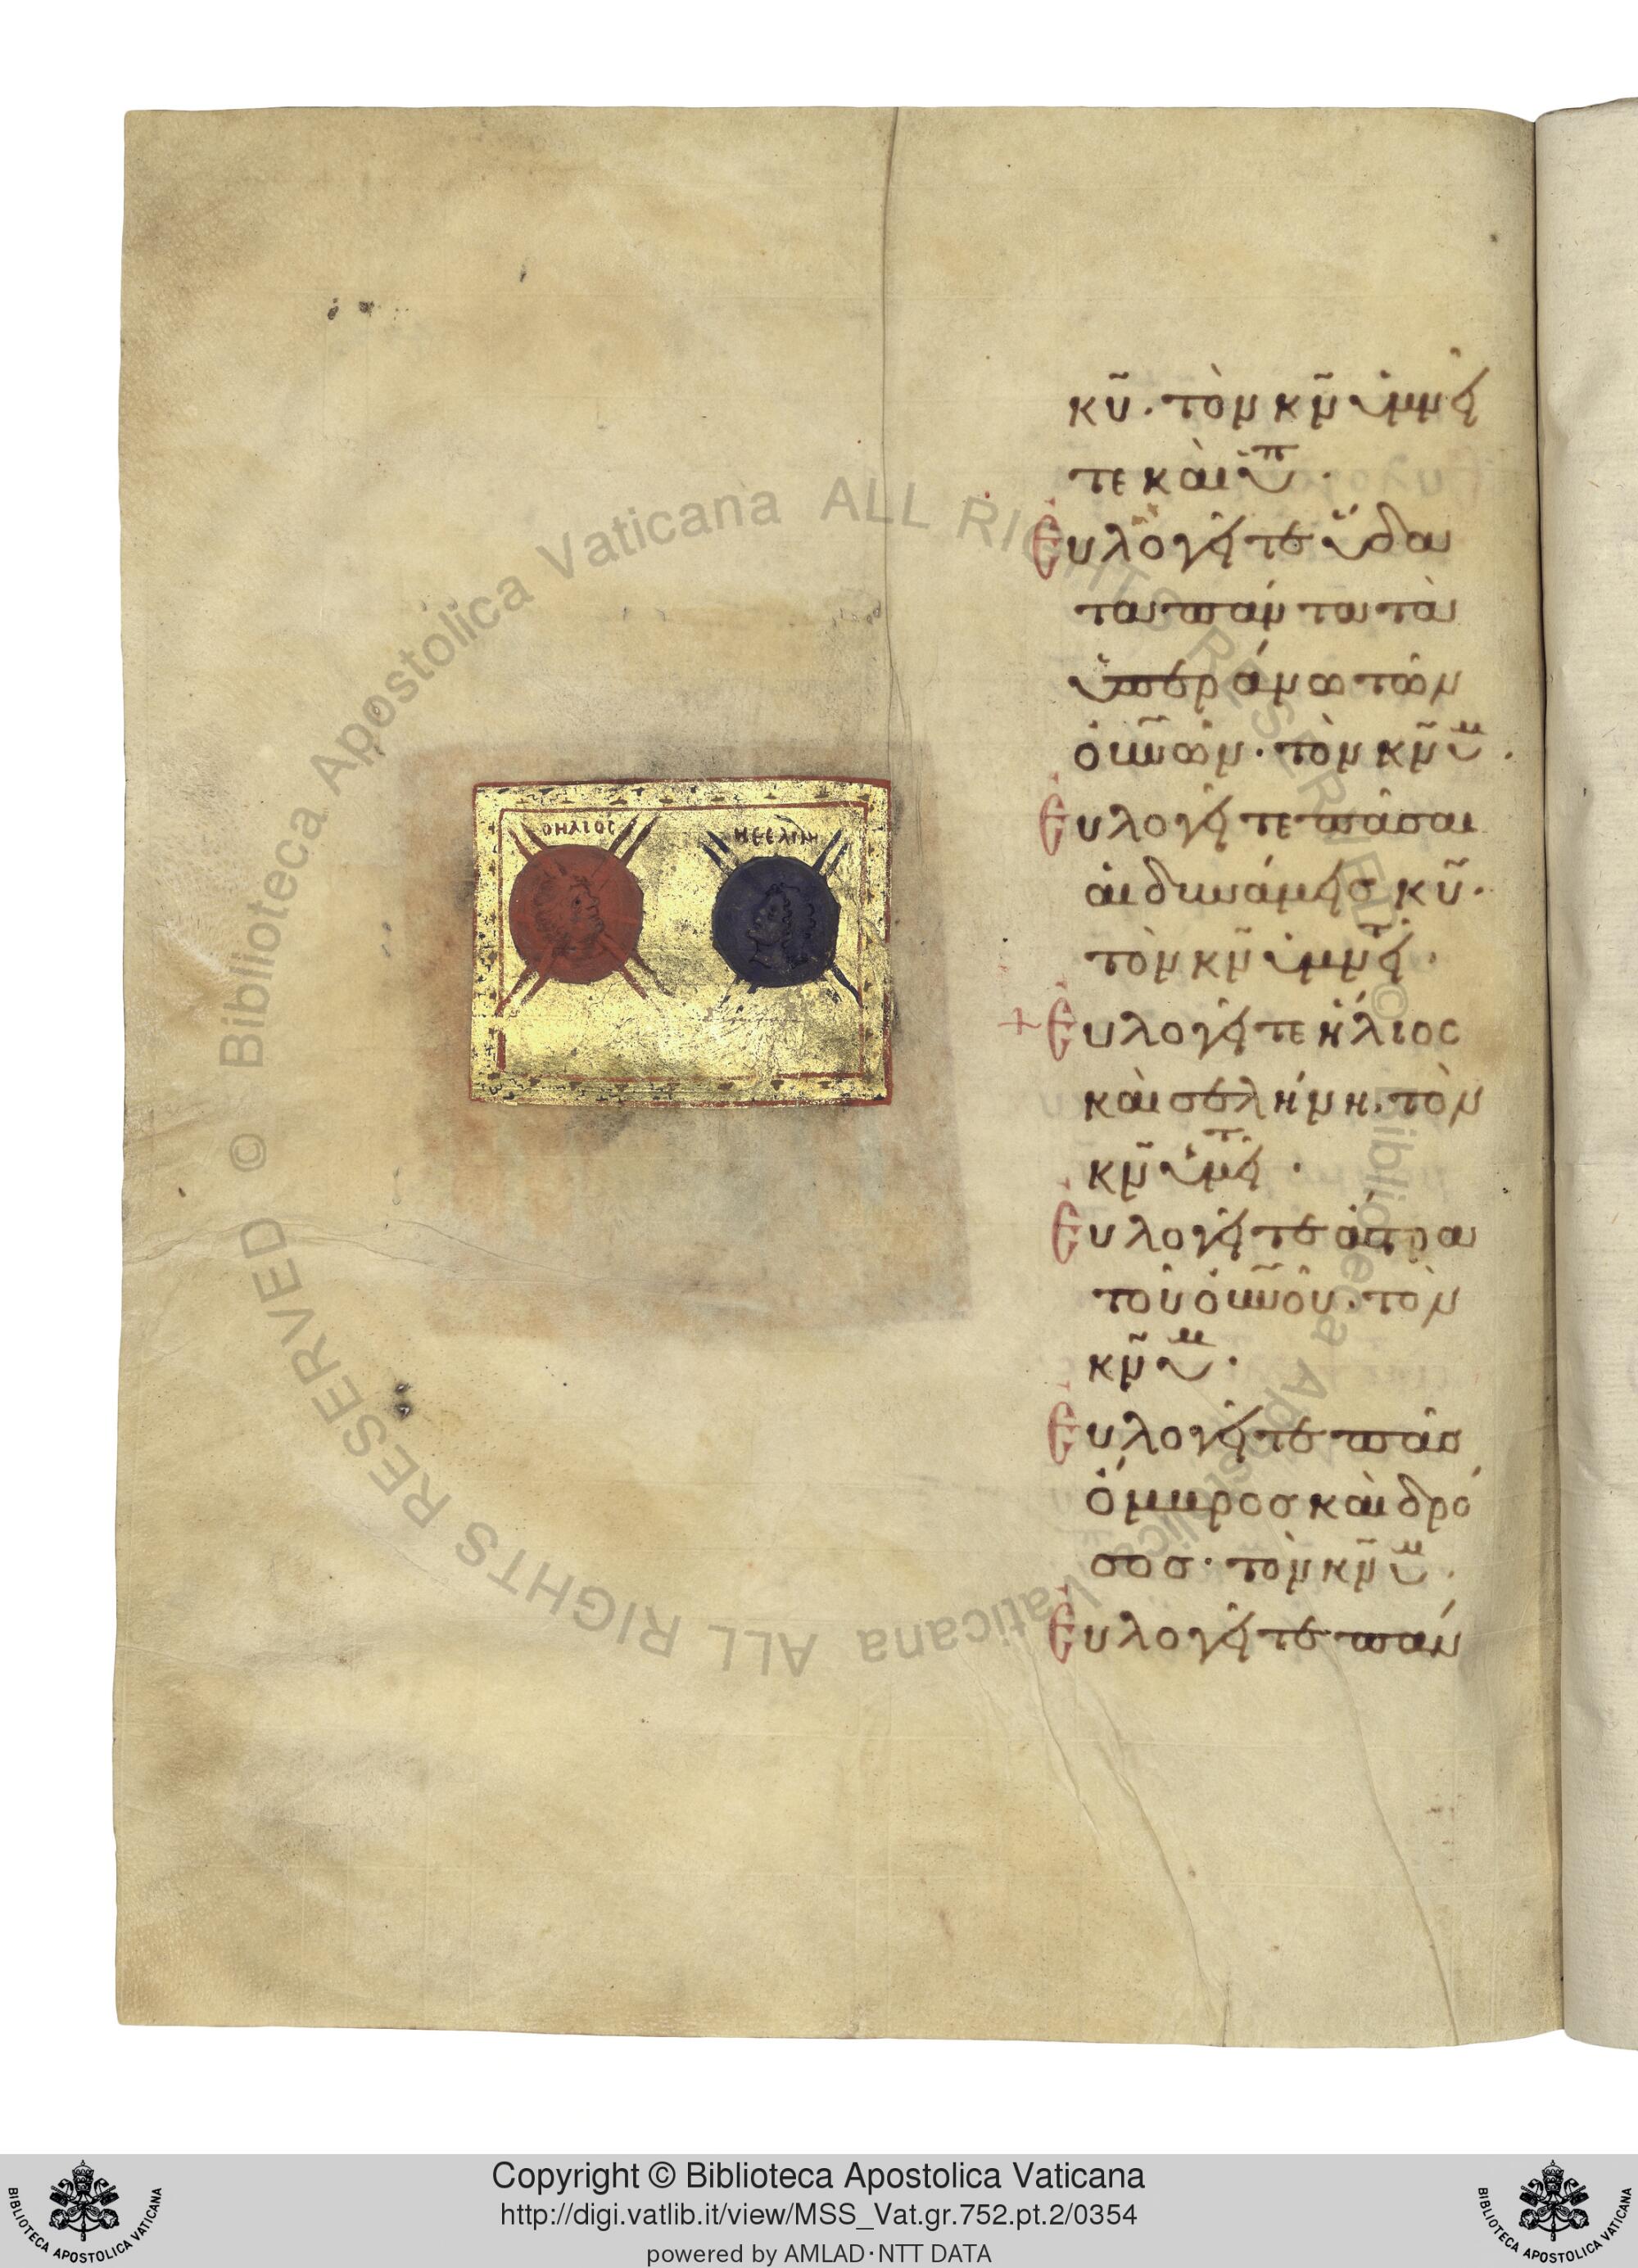 ὁ ἥλιος
ἡ σελήνη
κῦ· τὸν κν̃ ὑμνεῖ
τε καὶ ὑπ
Εὐλογεῖτε ὕδα
τα πάντα τὰ
ὑπεράνω τῶν
οὐνῶν· τὸν κν̃ ὑμ·
Εὐλογεῖτε πᾶσαι
αἱ δυνάμεις κῦ·
τὸν κν̃ ὑμνεῖτ·
+ Εὐλογεῖτε ἥλιος
καὶ σελήνη· τὸν
κν̃ ὑμνεῖτ·
Εὐλογεῖτε ἄστρα
τοῦ οὐνοῦ· τὸν
κν̃ ὑμ·
Εὐλογεῖτε πᾶσ
ὄμβροσ καὶ δρό
σοσ· τὸν κν̃ ὑμ·
Εὐλογεῖτε πάν
© Biblioteca Apostolica Vaticana ALL RIGHTS RESERVED © Biblioteca Apostolica Vaticana ALL RIGHTS RESERVED
BIBLIOTECA APOSTOLICA VATICANA
Copyright © Biblioteca Apostolica Vaticana
http://digi.vatlib.it/view/MSS_Vat.gr.752.pt.2/0354
powered by AMLAD·NTT DATA
BIBLIOTECA APOSTOLICA VATICANA